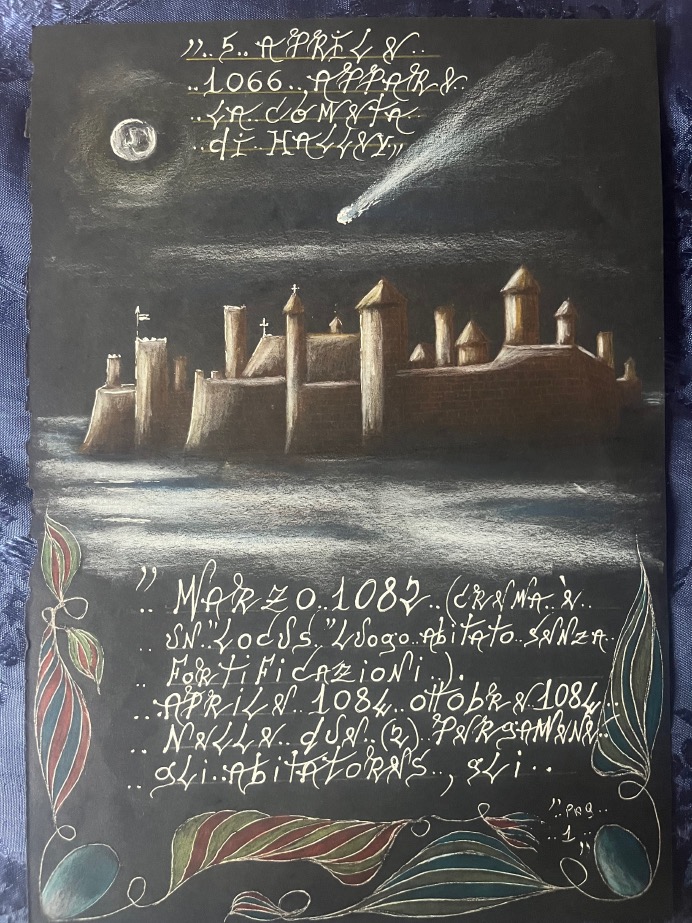 ,, 5.. APRILE..
..1066.., APPARE..
..LA COMETA
..di HALLEY,,
,, MARZO..1082..(CREMA..è..
.. UN.."LOCUS,"LUOGO..Abitato..SENZA..
.. FORTIFICAZIONI..).
..APRILE..1084..ottobRE 1084..
.. NELLE..dUE..(2)..PERGAMENE..
..gLi..AbitATORES.., gLi..
,,PAG..
..1,,